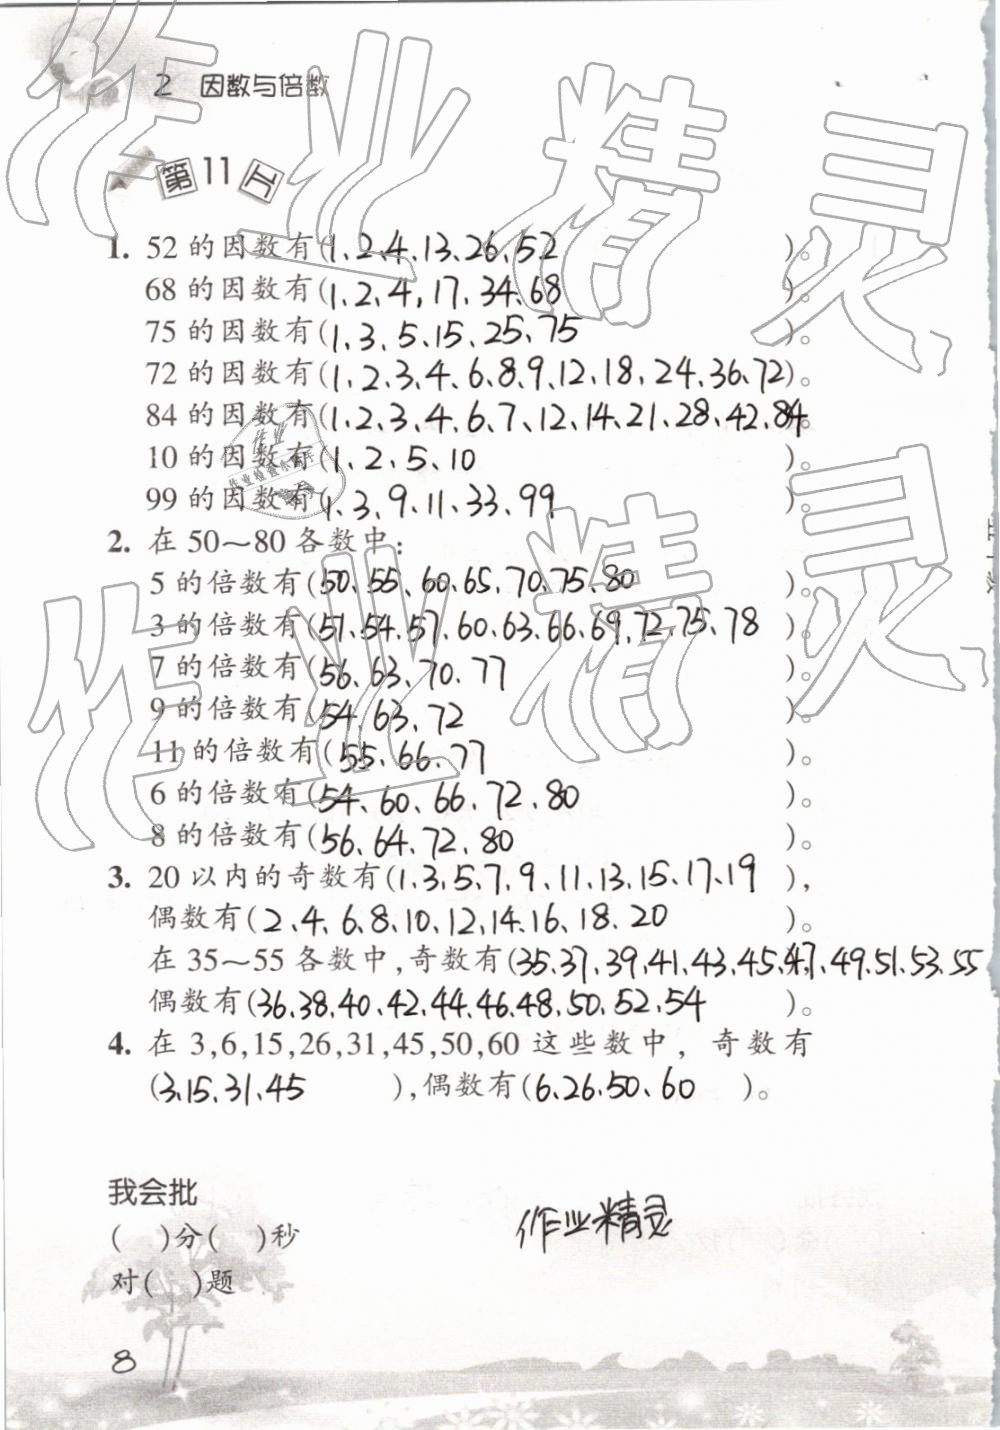 2 因数与倍数
第11天
1. 52的因数有(1、2、4、13、26、52 )。
68的因数有(1、2、4、17、34、68 )。
75的因数有(1、3、5、15、25、75 )。
72的因数有(1、2、3、4、6、8、9、12、18、24、36、72)。
84的因数有(1、2、3、4、6、7、12、14、21、28、42、84)。
10的因数有(1、2、5、10 )。
99的因数有(1、3、9、11、33、99 )。
2. 在50～80各数中:
5的倍数有(50、55、60、65、70、75、80 )。
3的倍数有(51、54、57、60、63、66、69、72、75、78 )。
7的倍数有(56、63、70、77 )。
9的倍数有(54、63、72 )。
11的倍数有(55、66、77 )。
6的倍数有(54、60、66、72、80 )。
8的倍数有(56、64、72、80 )。
3. 20以内的奇数有(1、3、5、7、9、11、13、15、17、19 ),
偶数有(2、4、6、8、10、12、14、16、18、20 )。
在35～55各数中,奇数有(35、37、39、41、43、45、47、49、51、53、55
偶数有(36、38、40、42、44、46、48、50、52、54 )。
4. 在3,6,15,26,31,45,50,60这些数中, 奇数有
(3、15、31、45 ),偶数有(6、26、50、60 )。
我会批
( )分( )秒
对( )题
作业精灵
8
作业精灵
作业精灵
作业
作业检查小助手